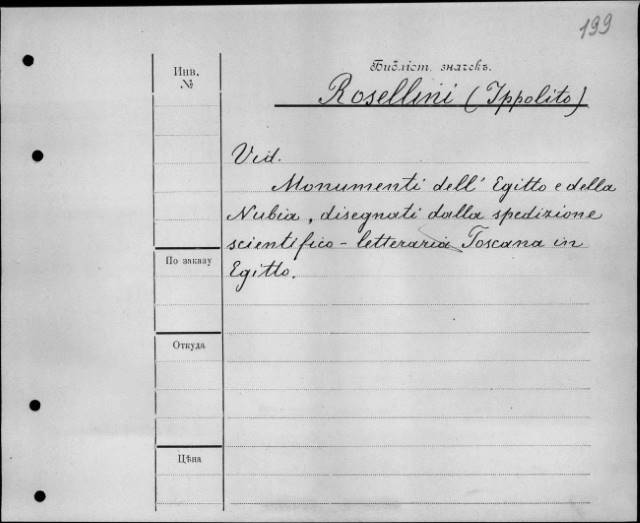 199
Библіот. значекъ.
Rosellini (Ippolito)
Инв.
№
Vid.
Monumenti dell' Egitto e della
Nubia, disegnati dalla spedizione
scientifico-letteraria Toscana in
Egitto.
По заказу
Откуда
Цѣна